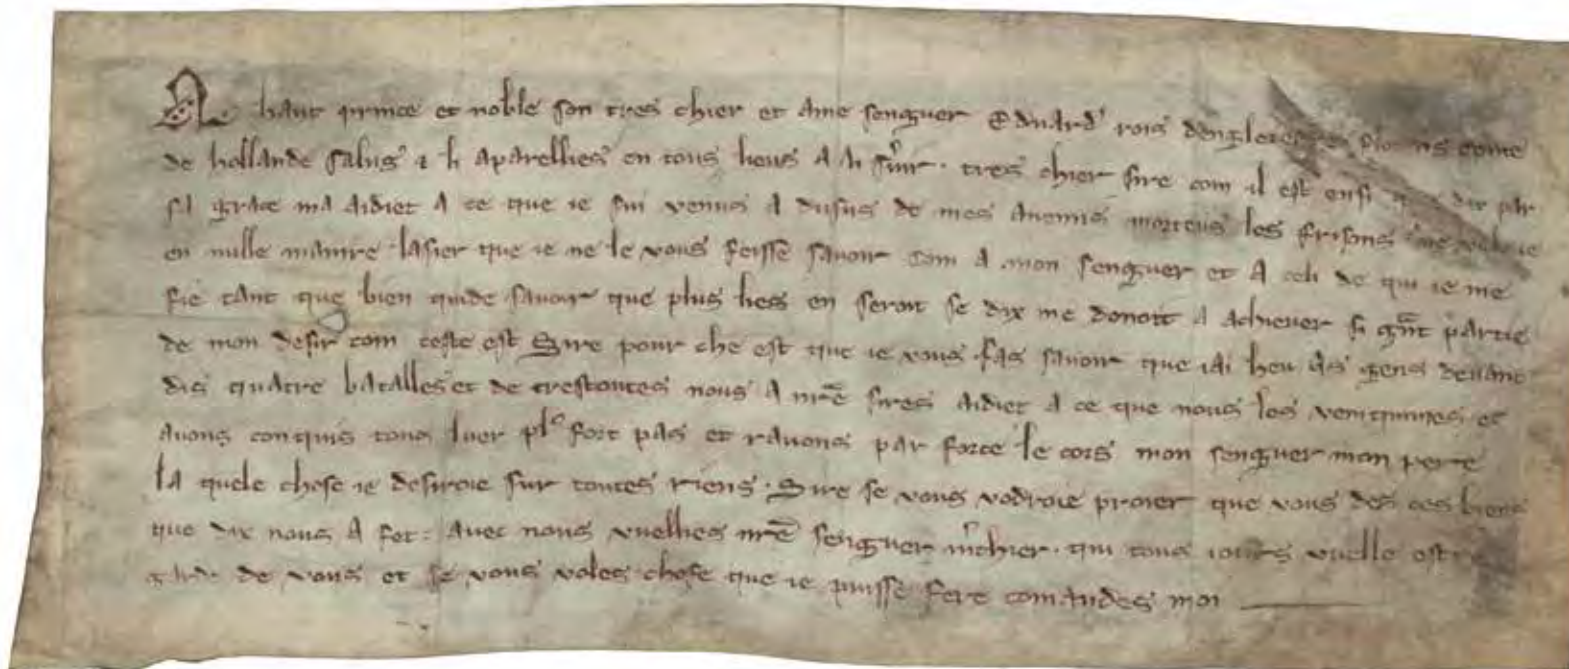 A haut prince et noble son tres chier et ame sengnuer Eduard' rois dengleterre florens conte
de hollande salus & li aparellies en tous lieus a li s'uir . tres chier sire com il est ensi que dix par
sa grace ma aidiet a ce que ie sui venus a dusus de mes anemis morteus les frisons ne
en nulle manire lasier que ie ne le vous feisse sauoir com a mon sengnuer et a celi de qui ie me
fie tant que bien quide sauoir que plus lies en seroit se dix me donoit a achieuer si gnt partie
de mon desir com ceste est Sire pour che est que ie vous fas sauoir que iai heu as gens deuant
dis quatre batalles et de trestoutes nous a nre sires aidiet a ce que nous les venquimes et
auons conquis tous luer plus fort pas et rauons par force le cors mon sengnuer mon pere
la quele chose ie desiroie sur toutes riens . Sire se vous vodroie proier que vous des ces biens
que dix nous a fet : auec nous vuellies nre sengnuer m'chier . qui tous iours vuelle estre
garde de vous et se vous voles chose que ie puisse fere comandes moi